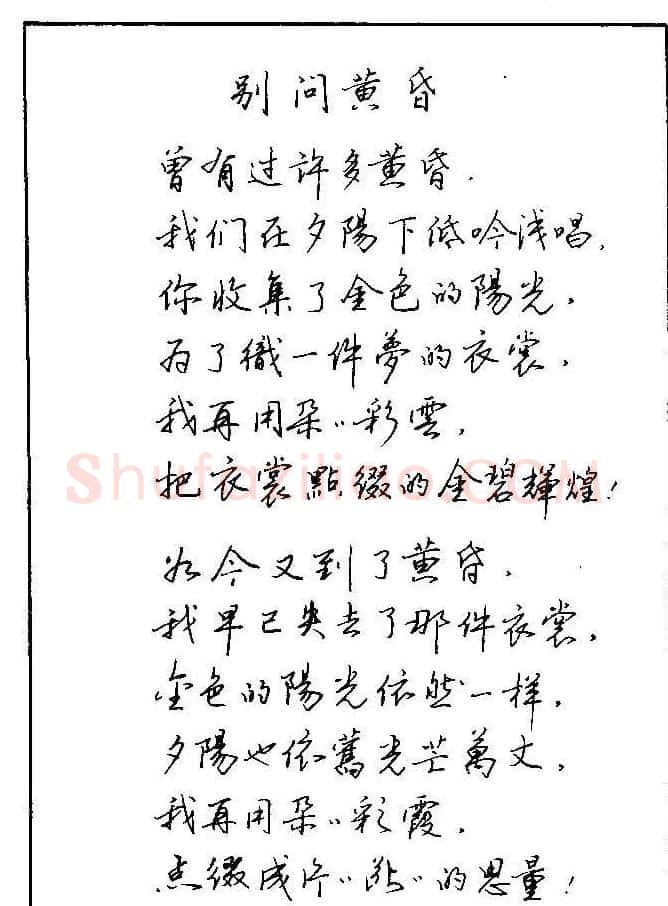 别问黄昏
曾有过许多黄昏.
我们在夕陽下低吟浅唱,
你收集了金色的陽光,
为了織一件夢的衣裳,
我再用朵〃彩雲,
shufaziliao.com
把衣裳點缀的金碧輝煌!
如今又到了黄昏,
我早已失去了那件衣裳,
金色的陽光依然一样,
夕陽也依舊光芒萬丈,
我再用朵〃彩霞,
点缀成片〃 〃的思量!